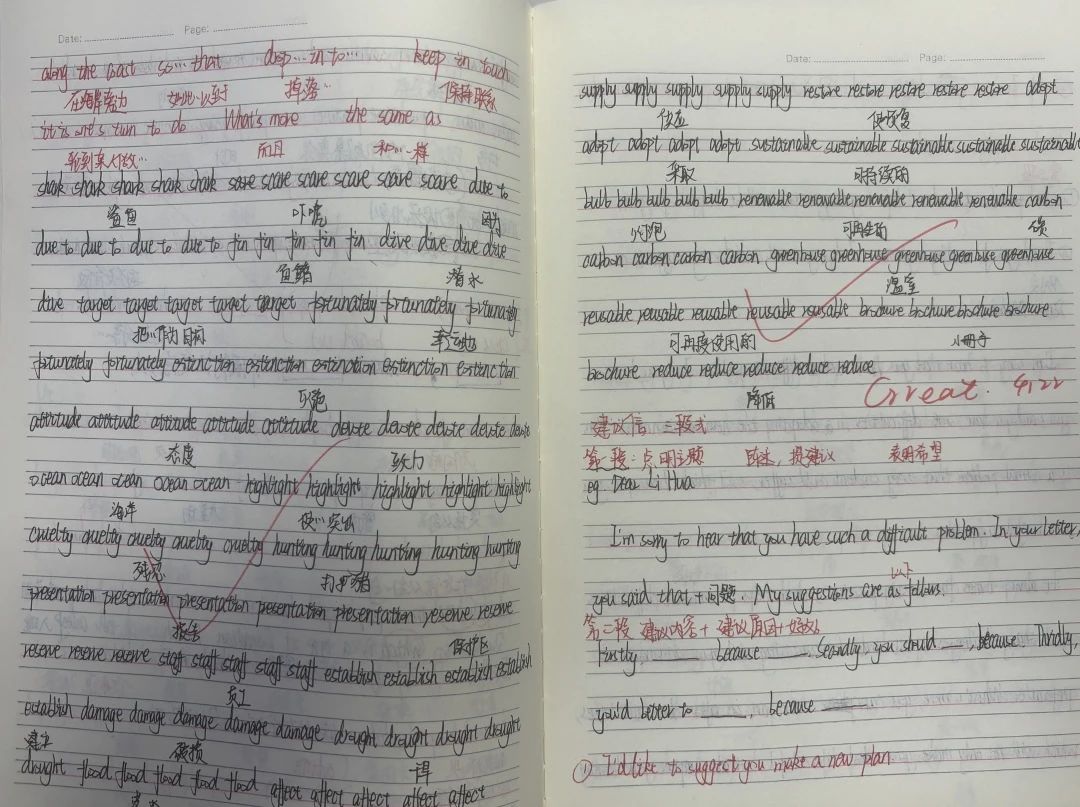 Date: Page:
along the coast so…that drop…in to… keep in touch
如此…以至于 掉落… 保持联系
it is one's turn to do What's more the same as
轮到某人做… 而且 和…一样
shark shark shark shark shark scare scare scare scare scare scare due to
鲨鱼 吓唬 因为
due to due to due to due to fin fin fin fin fin dive dive dive dive
鱼鳍 潜水
dive target target target target target fortunately fortunately fortunately
把…作为目标 幸运地
fortunately fortunately extinction extinction extinction extinction extinction
灭绝
attitude attitude attitude attitude attitude devote devote devote devote devote
态度 致力
ocean ocean ocean ocean ocean highlight highlight highlight highlight highlight
海洋 使…突出
cruelty cruelty cruelty cruelty cruelty hunting hunting hunting hunting hunting
残忍 打猎
presentation presentation presentation presentation presentation reserve reserve
报告 保护区
reserve reserve reserve staff staff staff staff staff establish establish establish establish
员工
establish damage damage damage damage damage drought drought drought drought
建立 破损 干旱
drought flood flood flood flood flood affect affect affect affect affect
Date: Page:
supply supply supply supply supply restore restore restore restore restore adopt
供应 使恢复
adopt adopt adopt adopt sustainable sustainable sustainable sustainable sustainable
采取 可持续的
bulb bulb bulb bulb bulb renewable renewable renewable renewable renewable carbon
灯泡 可再生的 碳
carbon carbon carbon carbon greenhouse greenhouse greenhouse greenhouse greenhouse
温室
reusable reusable reusable reusable reusable brochure brochure brochure brochure
可再度使用的 小册子
brochure reduce reduce reduce reduce reduce
降低
Great. 4,22
建议信 三段式
第一段：点明主题 陈述，提建议 表明希望
eg. Dear Li Hua
I'm sorry to hear that you have such a difficult problem. In your letter,
以下
you said that + 问题. My suggestions are as follows.
第二段 建议内容 + 建议原因 +
Firstly, ____ because ____. Secondly, you should ___, because. Thirdly,
you'd better to ____, because ____
① I'd like to suggest you make a new plan.